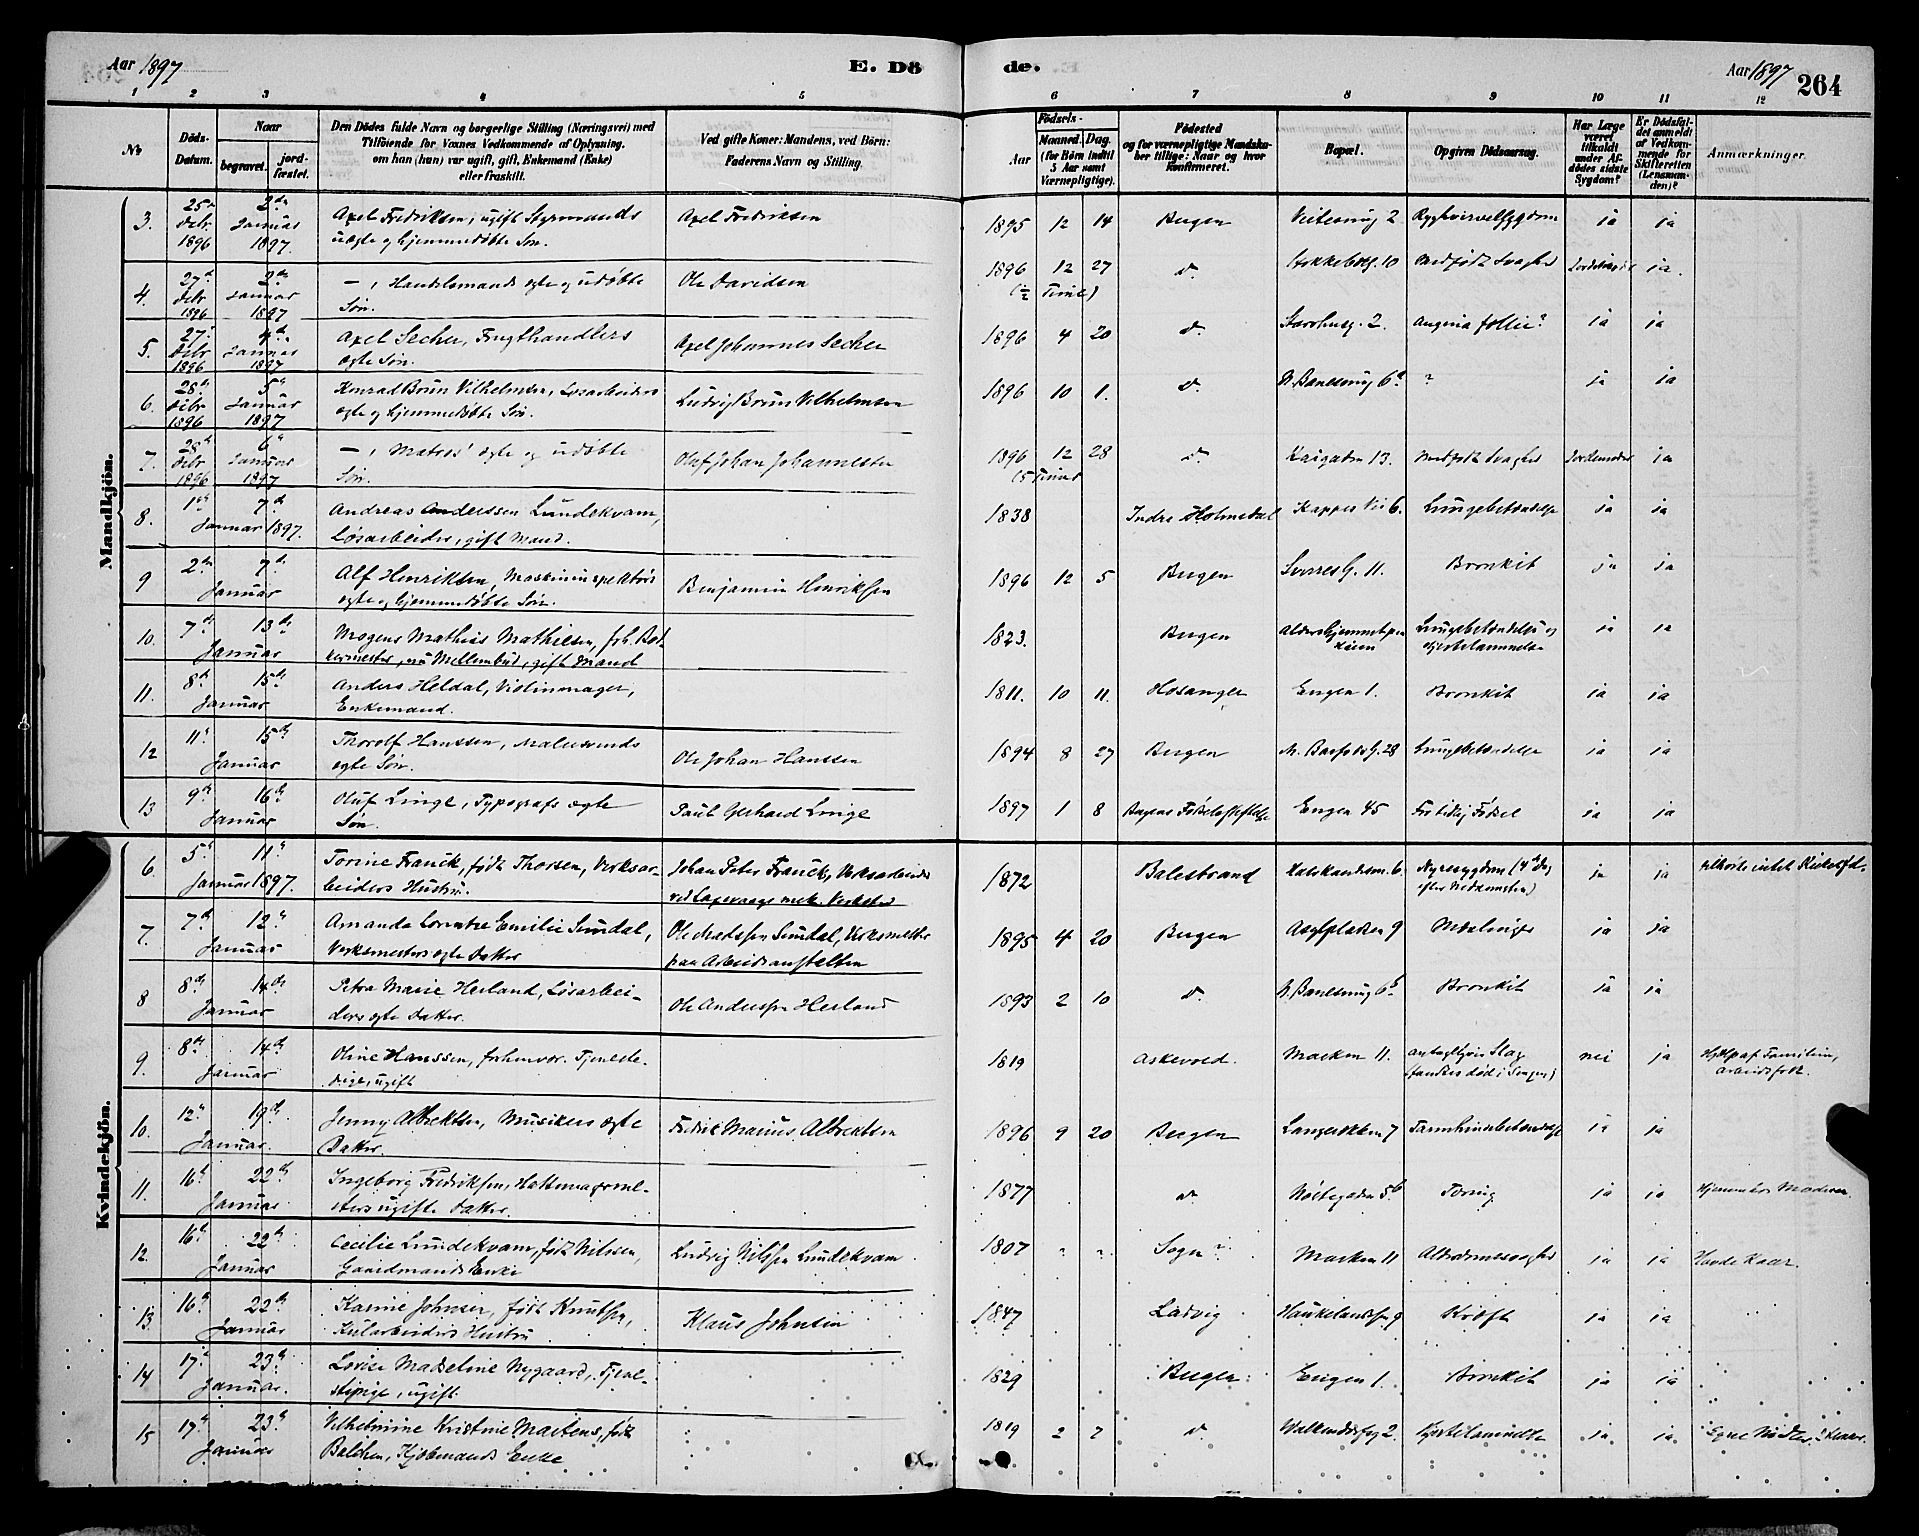 Aar 1897
E. Dö
de.
Aar 1897
264
1 2 3 4 5 6 7 8 9 10 11 12
No
Döds-Datum.
Naar
begravet.
jordfæstet.
Den Dödes fulde Navn og borgerlige Stilling (Næringsvei) med
Tilföiende for Voxnes Vedkommende af Oplysning,
om han (hun) var ugift, gift, Enkemand (Enke)
eller fraskilt.
Ved gifte Koner: Mandens, ved Börn:
Faderens Navn og Stilling.
Födsels-
Aar
Maaned. Dag.
(for Börn indtil 3 Aar samt Værnepligtige).
Födested
og for værnepligtige Mandskaber tillige: Naar og hvor konfirmeret.
Bopæl.
Opgiven Dödsaarsag.
Har Læge været tilkaldt under Afdödes sidste Sygdom?
Er Dödsfaldet anmeldt af Vedkommende for Skifteretten (Lensmanden)?
Anmærkninger.
Mandkjön.
3. 25 Decbr 1896 2den Januar 1897 Axel Fredriksen, ugift Styrmands
uægte og hjemmedøbte Søn. Axel Fredriksen 1895 12 14 Bergen 2 Ryghvirvelsygdom ja ja
4. 27 Decbr 1896 2den Januar 1897 —, Handelsmands ægte og udøbte
Søn. Ole Davidsen 1896 12 27 (½ Time) d. 10 Medfødt Svaghed ja.
5. 27 Decbr 1896 4de Januar 1897 Axel Secher, Frugthandlers
ægte Søn. Axel Johannes Secher 1896 4 20 d. 2. Angina ja ja
6. 28 Decbr 1896 5 Januar 1897 Konrad Brun Vilhelmsen, Løsarbeiders
ægte og hjemmedøbte Søn. Ludvig Brun Vilhelmsen 1896 10 1. d. 6 ? ja ja
7. 28 Decbr 1896 6 Januar 1897 —, Matros' ægte og udøbte
Søn. Oluf Johan Johannesen 1896 12 28 (5 Timer d. Kaigaden 13. Medfødt Svaghed Jordemoder ja
8. 1 Januar 1897. 7 Andreas Anderssen Lundekvam,
Løsarbeider, gift Mand. 1838 Indre Holmedal 6. Lungebetændelse ja ja
9 2den Januar 7de Alf Henriksen, Maskininspektørs
ægte og hjemmedøbte Søn. Benjamin Henriksen 1896 12 5 Bergen Sverresg. 11. Bronkit ja ja
10. 7de Januar 13de Mogens Mathias Mathiesen, fhv.
nu Mellembud, gift Mand 1823. Bergen Aldershjemmet Lungebetændelse og
Hjertelammelse ja ja
11. 8de Januar 15de Anders Heldal, Violinmager,
Enkemand. 1811. 10 11. Hosanger Engen 1. Bronkit ja ja
12 11 Januar 15de Thorolf Hanssen, Malersvends
ægte Søn. Ole Johan Hanssen 1894 8 27 Bergen 28 Lungebetændelse ja ja
13 9de Januar 16de Oluf Linge, Typografs ægte
Søn. Paul Gerhard Linge 1897 1 8 Bergens Fødselsstiftelse Engen 45 For tidlig Fødsel ja ja
Kvindekjön.
6. 5 Januar 1897. 11 Torine Franck, født Thorsen, Verksarbeiders
Hustru. Johan Peter Franck, Verksarbeider
ved Laxevaags mek. Verksted 1872 Balestrand 6. Nyresygdom
efter Nedkomsten) ja ja
7. 7de Januar 12 Amanda Lorentze Emilie Sundal,
Verksmesters ægte Datter Ole Madssen Sundal, Verksmester
paa Arbeidsanstalten 1895 4 20 Bergen Asylpladsen 9 Mæslinger ja ja
8 8de Januar 14de Petra Marie Herland, Løsarbeiders
ægte Datter. Ole Anderssen Herland 1893 2 10 d. 6 Bronkit ja ja
9. 8de Januar 14de Oline Hanssen, forhenvr. Tjenestepige,
ugift 1819 Askevold. Marken 11. antagelig Slag
(fandtes død i Sengen) nei ja Hjælp af Familien,
arbeidsfolk.
10. 12 Januar 19de Jenny Albrektsen, Musikers ægte
Datter. Fredrik Marius Albrektsen 1896 9 20 Bergen 7 Tarmhindebetændelse ja ja
11. 16 Januar 22de Ingeborg Fredriksen, Hattemagermesters
ugifte Datter. 1877 d. Nøstegaden 5b Tæring ja ja Hjemme hos Moderen.
12. 16 Januar 22de Cecilie Lundekvam, født Nilsen,
Gaardmands Enke Ludvig Nilsen Lundekvam 1807 ? ? Sogn ? Marken 11 Alderdomssvaghed ja ja
13. 16 Januar 22de Karine Johnsen, født Knutsen,
Kularbeiders Hustru Klaus Johnsen 1847 Ladvig 9 Kræft ja ja
14 17 Januar 23de Lovise Madseline Nygaard, Tjenestepige,
ugift. 1829 Bergen Engen 1. Bronkit ja ja
15 17 Januar 23de Vilhelmine Kristine Martens, født
Balchen, Kjøbmands Enke 1819 2 7 d. 2. ja ja.